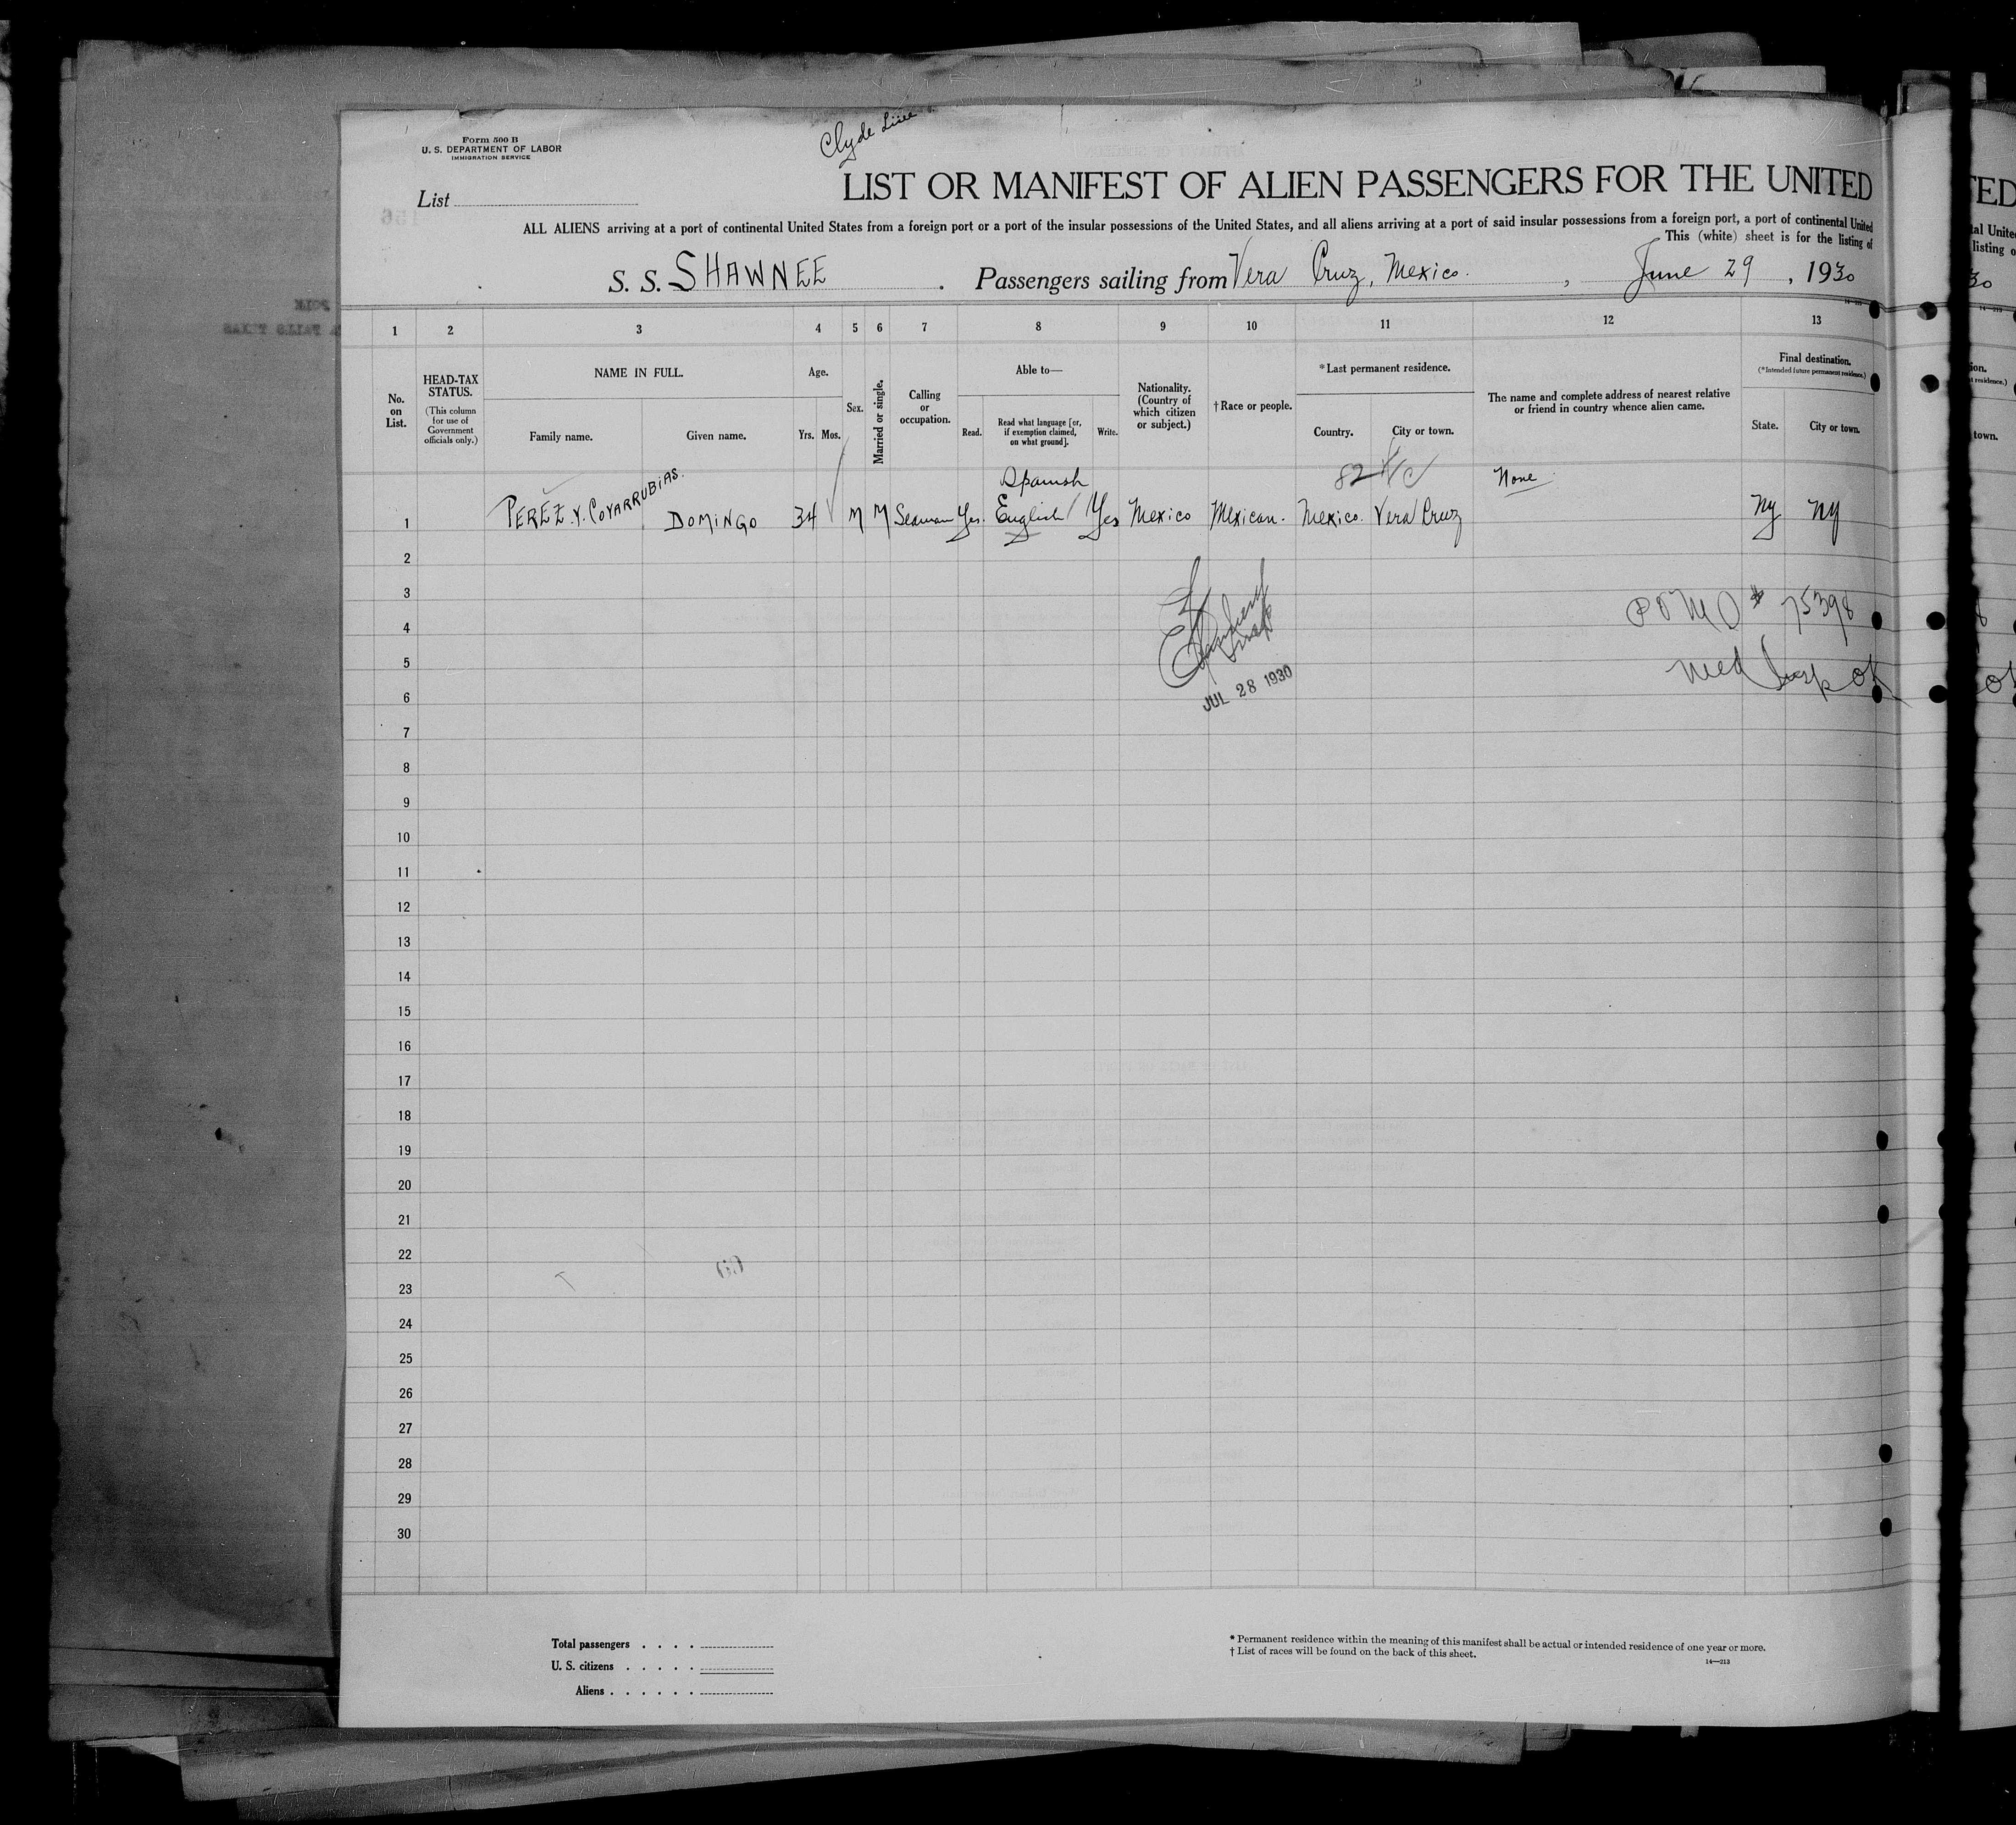 Form 500 B
U. S. DEPARTMENT OF LABOR
IMMIGRATION SERVICE
Clyde Line
List
LIST OR MANIFEST OF ALIEN PASSENGERS FOR THE UNITED
ALL ALIENS arriving at a port of continental United States from a foreign port or a port of the insular possessions of the United States, and all aliens arriving at a port of said insular possessions from a foreign port, a port of continental United
This (white) sheet is for the listing of
S. S. SHAWNEE . Passengers sailing from Vera Cruz, Mexico. , June 29 , 1930
1 2 3 4 5 6 7 8 9 10 11 12 13
No. on List.
HEAD-TAX STATUS.
(This column for use of Government officials only.)
NAME IN FULL.
Family name.
Given name.
Age.
Yrs. Mos.
Sex.
Married or single.
Calling or occupation.
Able to—
Read.
Read what language [or, if exemption claimed, on what ground].
Write.
Nationality. (Country of which citizen or subject.)
†Race or people.
*Last permanent residence.
Country.
City or town.
The name and complete address of nearest relative or friend in country whence alien came.
Final destination.
(*Intended future permanent residence.)
State.
City or town.
Spanish
82
None
1 PEREZ Y. COVARRUBIAS. DOMINGO 34 M M Seaman Yes. English Yes Mexico Mexican. Mexico. Vera Cruz NY NY
2
3
4
5
6
7
8
9
10
11
12
13
14
15
16
17
18
19
20
21
22
23
24
25
26
27
28
29
30
75398
Med Insp ok
JUL 28 1930
Total passengers . . . .
U. S. citizens . . . . .
Aliens . . . . . .
* Permanent residence within the meaning of this manifest shall be actual or intended residence of one year or more.
† List of races will be found on the back of this sheet.
14—213